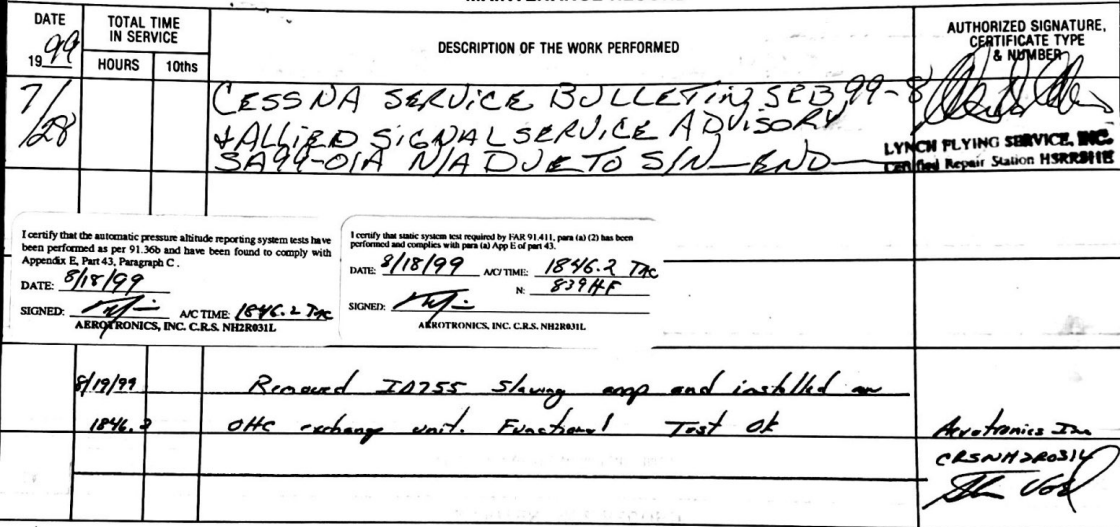 DATE
1999
TOTAL TIME
IN SERVICE
HOURS 10ths
DESCRIPTION OF THE WORK PERFORMED
AUTHORIZED SIGNATURE,
CERTIFICATE TYPE
& NUMBER
7/28
CESSNA SERVICE BULLETIN SEB 99-8
+ ALLIED SIGNAL SERVICE ADVISORY
SA99-01A N/A DUE TO S/N — END —
LYNCH FLYING SERVICE, INC.
Certified Repair Station
I certify that the automatic pressure altitude reporting system tests have
been performed as per 91.36b and have been found to comply with
Appendix E, Part 43, Paragraph C.
DATE: 8/18/99
SIGNED: A/C TIME: 1846.2 TAC
AEROTRONICS, INC. C.R.S. NH2R031L
I certify that static system test required by FAR 91.411, para (a) (2) has been
performed and complies with para (a) App E of part 43.
DATE: 8/18/99 A/C/TIME: 1846.2 TAC
N: 839HF
SIGNED:
AEROTRONICS, INC. C.R.S. NH2R031L
8/19/99 Removed slaving amp and installed an
1846.2 OHC exchange unit. Functional Test Ok
Aerotronics Inc
CRSNH2R031L